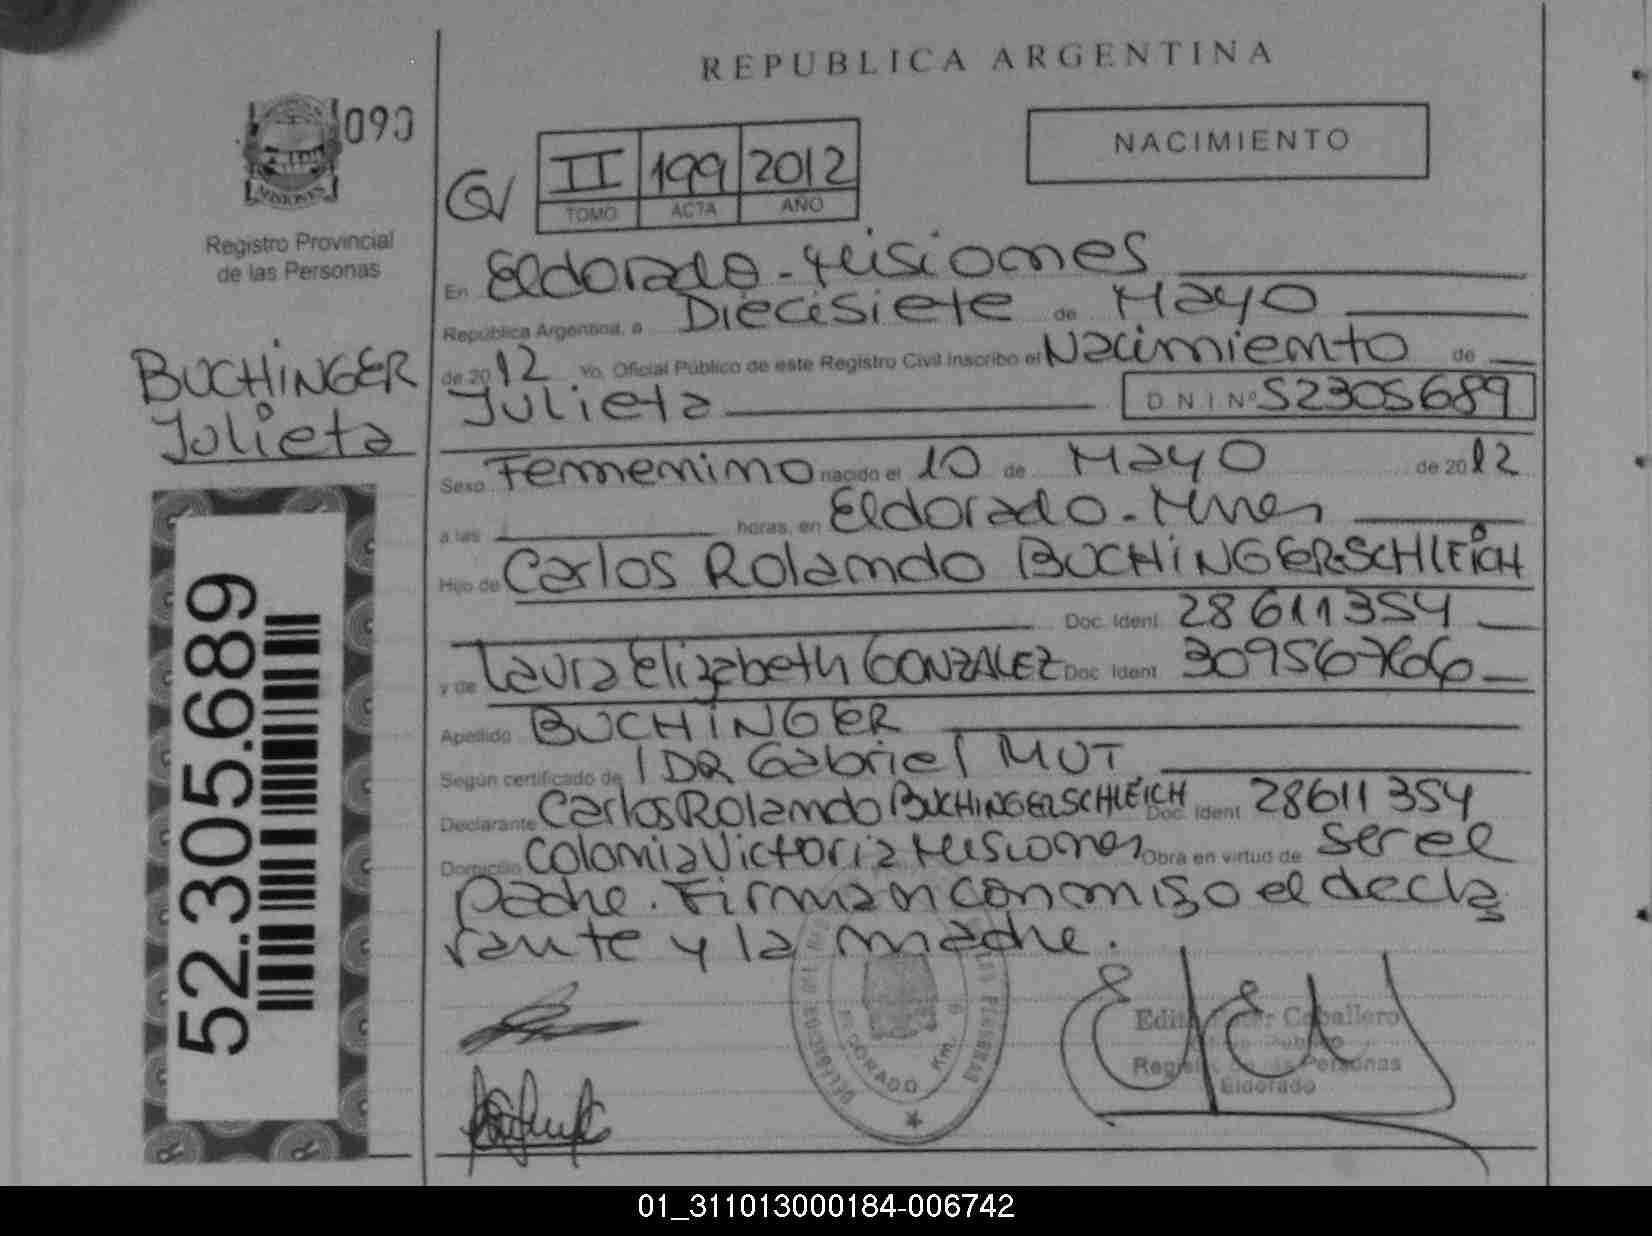 REPUBLICA ARGENTINA
090
NACIMIENTO
II 199 2012
TOMO ACTA AÑO
Registro Provincial
de las Personas
En Eldorado - Misiones
República Argentina, a Diecisiete de Mayo
de 2012 Yo, Oficial Público de este Registro Civil Inscribo el Nacimiento de
Julieta DNI Nº 52305689
BUCHINGER
Julieta
Sexo Femenino nacido el 10 de Mayo de 2012
a las horas, en Eldorado - Mnes
Hijo de Carlos Rolando BUCHINGERSCHLEICH
Doc. Ident. 28611354
y de Laura Elizabeth GONZALEZ Doc. Ident. 309567606
Apellido BUCHINGER
Según certificado de DR Gabriel MUT
Declarante Carlos Rolando BUCHINGERSCHLEICH Doc. Ident. 28611354
Domicilio Colonia Victoria Misiones Obra en virtud de ser el
Padre. Firman conmigo el decla
rante y la madre.
52.305.689
ELDORADO Km. 9
Caballero
Personas
Eldorado
01_311013000184-006742